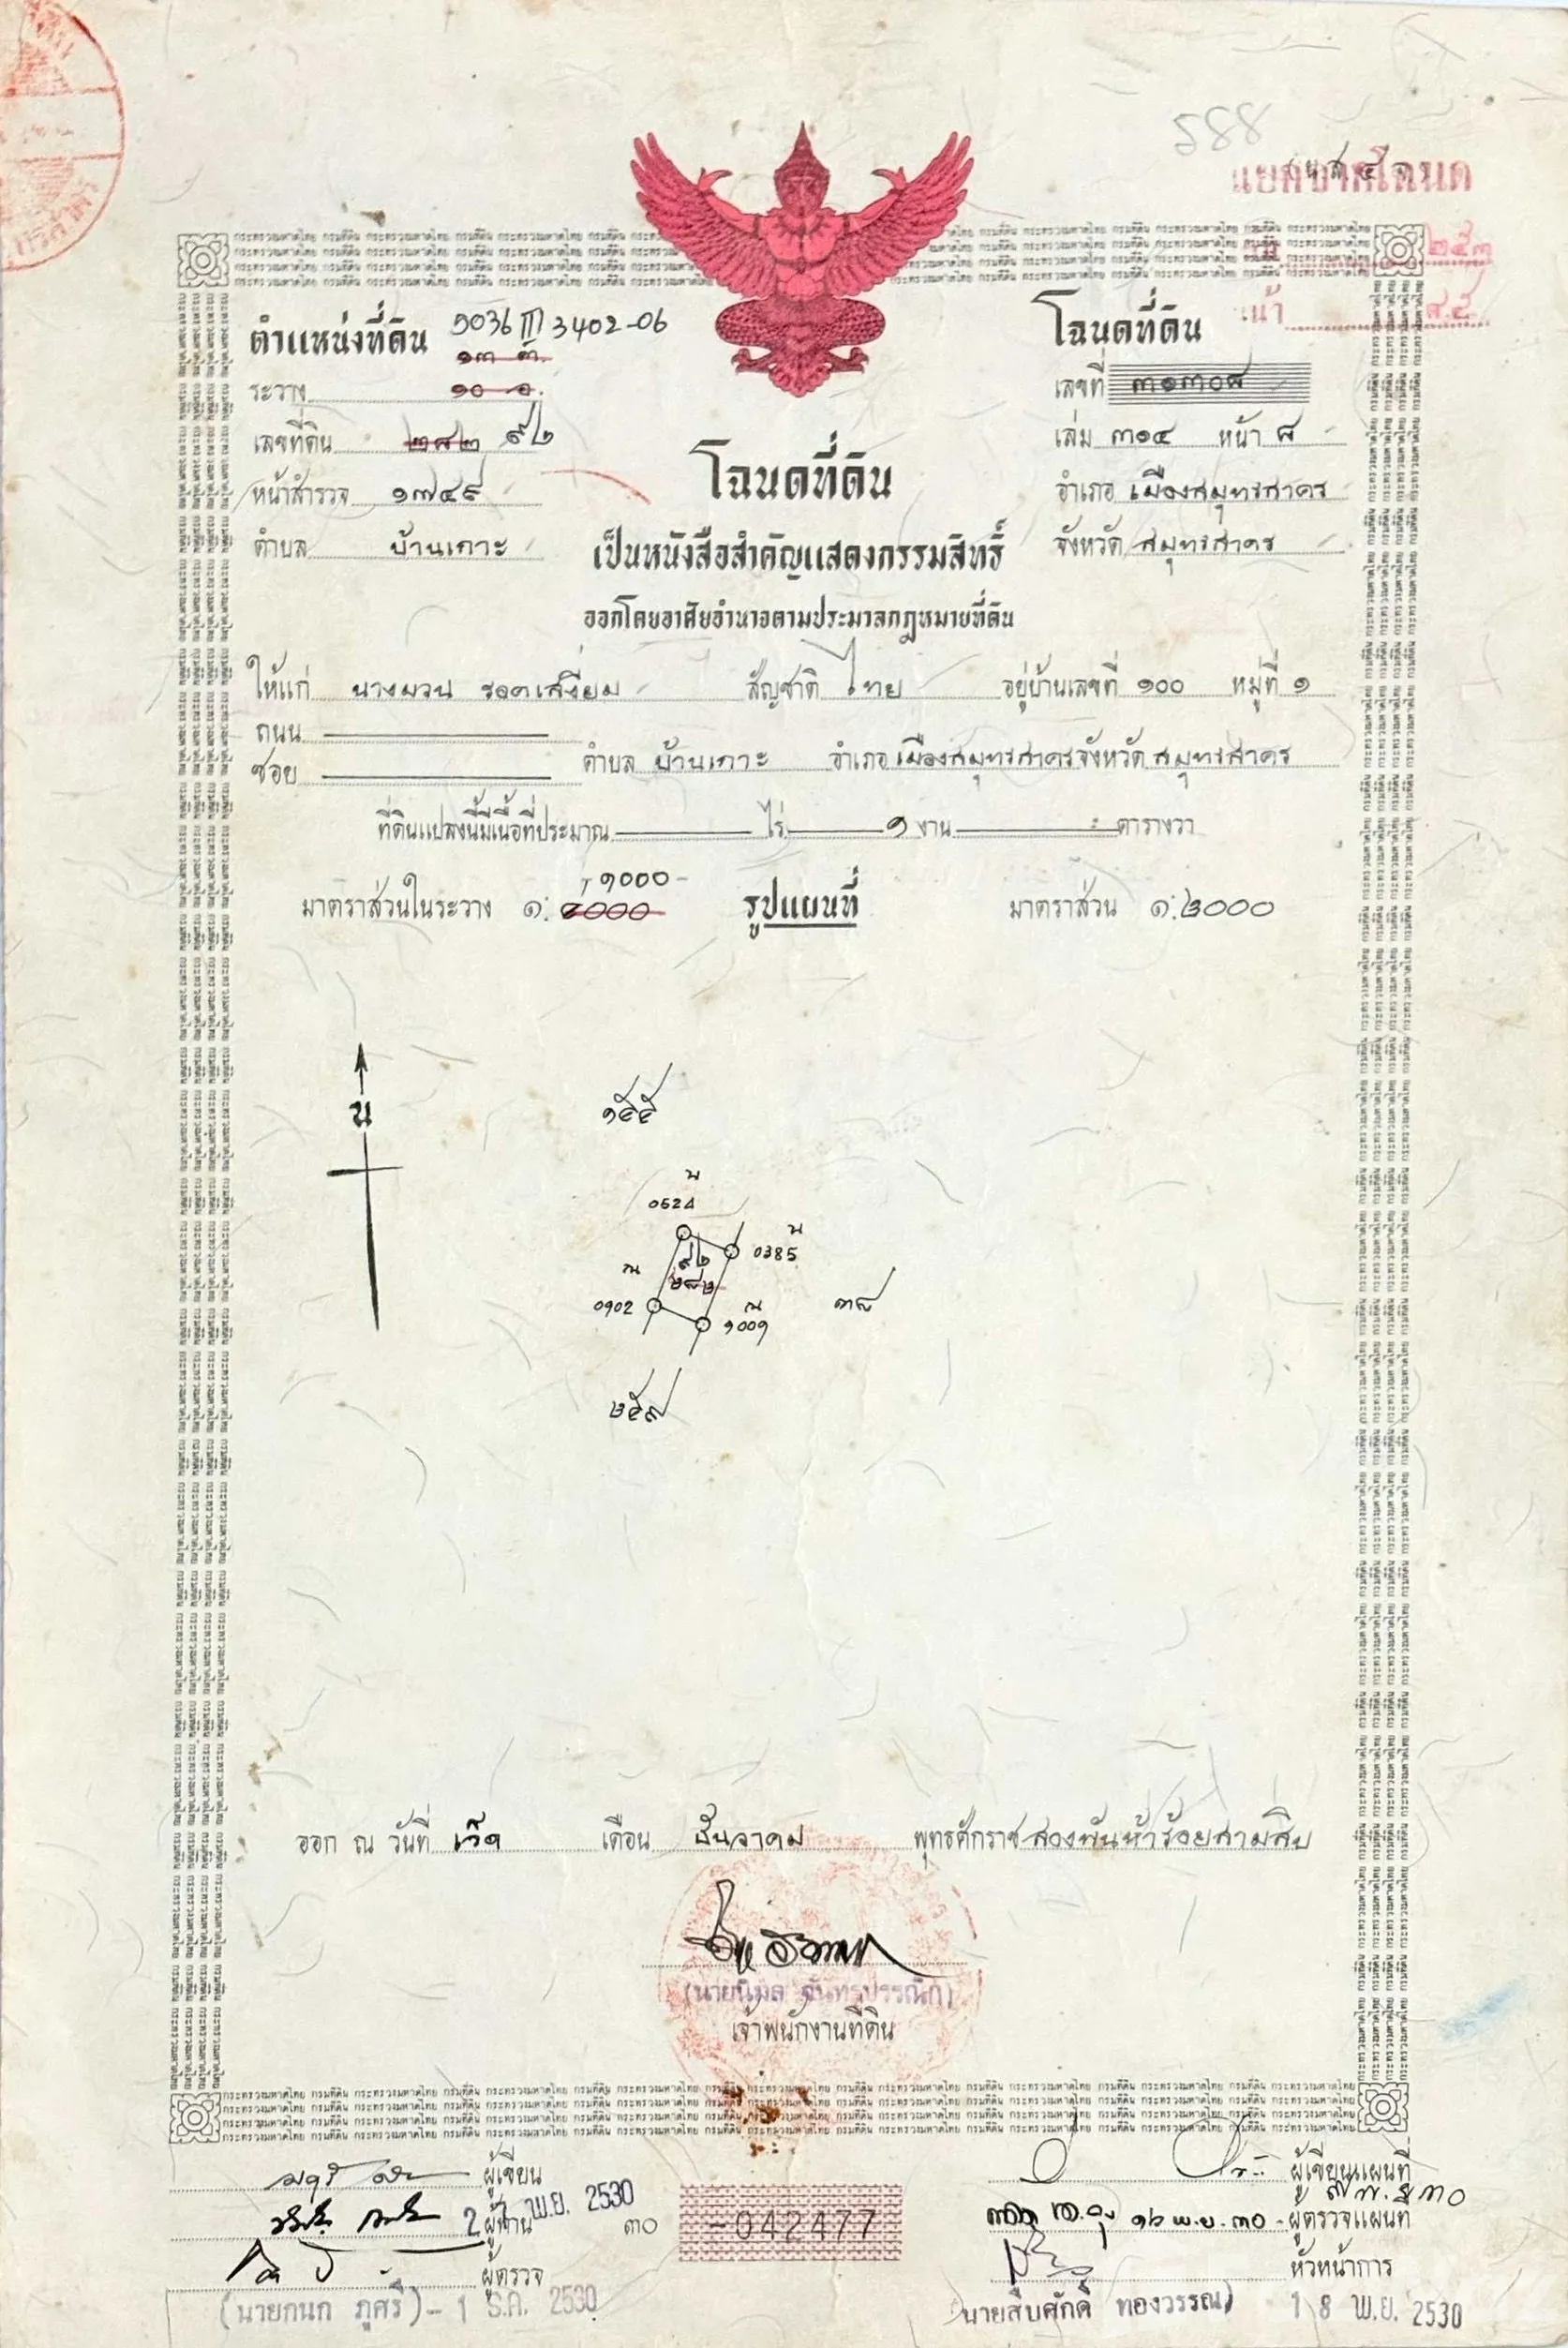 588
(น.ส.๔ จ.)
แยกจากโฉนด
๒๕๓
หน้า ๙๕
ตำแหน่งที่ดิน 5036 III 3402-06
๑๓ ต.
ระวาง ๑๐ อ.
เลขที่ดิน ๒๘๒ ๙๒
หน้าสำรวจ ๑๗๔๙
ตำบล บ้านเกาะ
โฉนดที่ดิน
เลขที่ ๓๑๓๐๘
เล่ม ๓๑๔ หน้า ๘
อำเภอ เมืองสมุทรสาคร
จังหวัด สมุทรสาคร
โฉนดที่ดิน
เป็นหนังสือสำคัญแสดงกรรมสิทธิ์
ออกโดยอาศัยอำนาจตามประมวลกฎหมายที่ดิน
ให้แก่ นางมวน รอดเสงี่ยม สัญชาติ ไทย อยู่บ้านเลขที่ ๑๐๐ หมู่ที่ ๑
ถนน
ซอย ตำบล บ้านเกาะ อำเภอ เมืองสมุทรสาคร จังหวัด สมุทรสาคร
ที่ดินแปลงนี้มีเนื้อที่ประมาณ ไร่ ๑ งาน ตารางวา
มาตราส่วนในระวาง ๑:๔๐๐๐ ๑๐๐๐ รูปแผนที่ มาตราส่วน ๑:๒๐๐๐
น
๑๕๕
น
0524
น
0385
๙๒
๒๘๒
ณ
0902
ณ
1009
๓๘
๒๕๙
ออก ณ วันที่ เจ็ด เดือน ธันวาคม พุทธศักราช สองพันห้าร้อยสามสิบ
(นายนิมล จันทรปรรณิก)
เจ้าพนักงานที่ดิน
ผู้เขียน
ผู้ทาน พ.ย. 2530
ผู้ตรวจ
(นายกนก ภูศรี) - 1 ธ.ค. 2530
-042477
ผู้เขียนแผนที่
ผู้ตรวจแผนที่ ๑๖ พ.ย. ๓๐
หัวหน้าการ
นายสืบศักดิ์ ทองวรรณ) 18 พ.ย. 2530